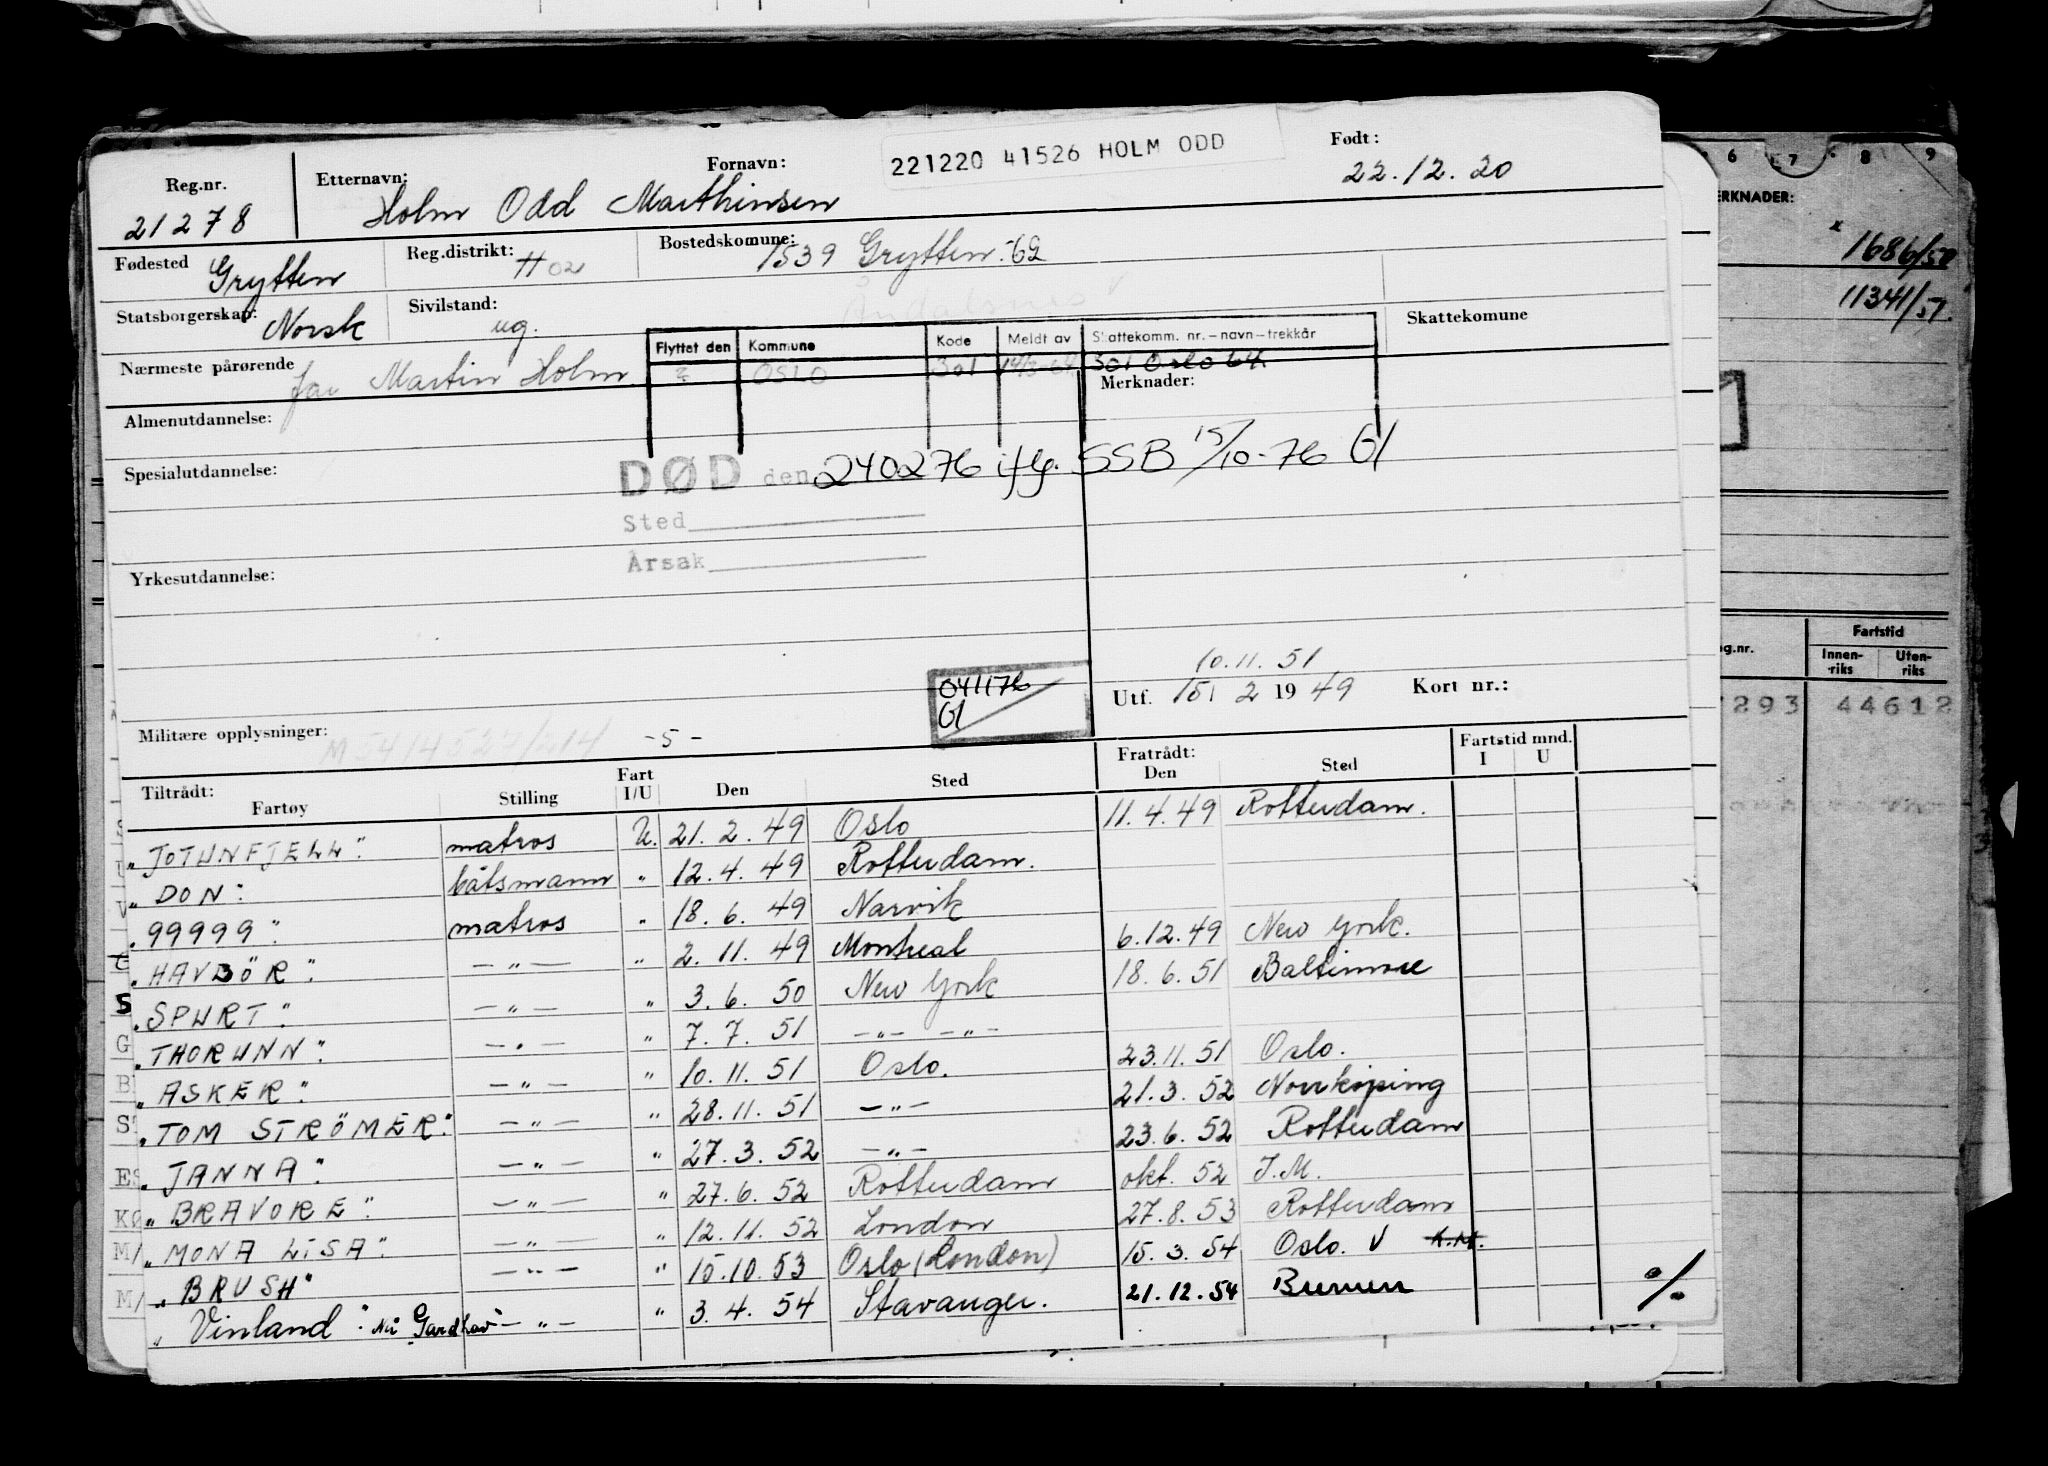 221220 41526 HOLM ODD
Reg.nr. Etternavn: Fornavn: Født:
21278 Holm Odd Marthinsen 22.12.20
Fødested Grytten Reg.distrikt: H02 Bostedskomune: 1539 Grytten-62
Åndalsnes
Statsborgerskap: Norsk Sivilstand: ug. Skattekomune
Flyttet den Kommune Kode Meldt av Skattekomm. nr. – navn – trekkår
Nærmeste pårørende far Martin Holm ? OSLO 301 301 Oslo 64
Merknader:
Almenutdannelse:
Spesialutdannelse: DØD den 240276 iflg. SSB 15/10-76 Gl
Sted
Årsak
Yrkesutdannelse:
10.11.51
041176
Gl
Utf. 15. 2 1949 Kort nr.:
Militære opplysninger: -5-
Tiltrådt: Fart Fratrådt: Fartstid mnd.
Fartøy Stilling I/U Den Sted Den Sted I U
"JOTUNFJELL". matros U. 21. 2. 49 Oslo 11. 4. 49 Rotterdam.
"DON". båtsmann " 12. 4. 49 Rotterdam.
"99999". matros " 18. 6. 49 Narvik
"HAVBÖR". — " — " 2. 11. 49 Montreal 6. 12. 49 New York.
"SPURT". — " — " 3. 6. 50 New York 18. 6. 51 Baltimore
"THORUNN". — " — " 7. 7. 51 — " — — " —
"ASKER". — " — " 10. 11. 51 Oslo. 23. 11. 51 Oslo.
"TOM STRÖMER". — " — " 28. 11. 51 — " — 21. 3. 52 Norrköping
"JANNA". — " — " 27. 3. 52 — " — 23. 6. 52 Rotterdam
"BRAVORE". — " — " 27. 6. 52 Rotterdam okt. 52 I.M.
"MONA LISA". — " — " 12. 11. 52 London 27. 8. 53 Rotterdam
"BRUSH" — " — " 15. 10. 53 Oslo (London) 15. 3. 54 Oslo. V
"Vinland". Nå Gardhav — " — " 3. 4. 54 Stavanger. 21. 12. 54 Bremen %
6 7 8 9
ERKNADER:
x 1686/51
11341/51.
Fartstid
g.nr. Innen-riks Uten-riks
7293 44612